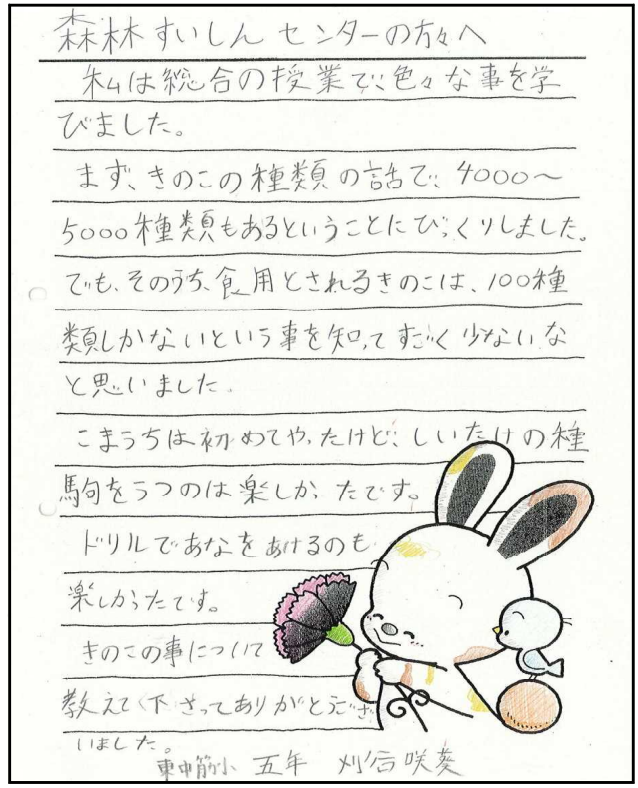 森林すいしんセンターの方々へ
私は総合の授業で、色々な事を学
びました。
まず、きのこの種類の話で、4000〜
5000種類もあるということにびっくりしました。
でも、そのうち、食用とされるきのこは、100種
類しかないという事を知ってすごく少ないな
と思いました。
こまうちは初めてやったけど、しいたけの種
駒をうつのは楽しかったです。
ドリルであなをあけるのも
楽しかったです。
きのこの事について
教えて下さってありがとうござ
いました。
東中筋小 五年 刈谷咲葵